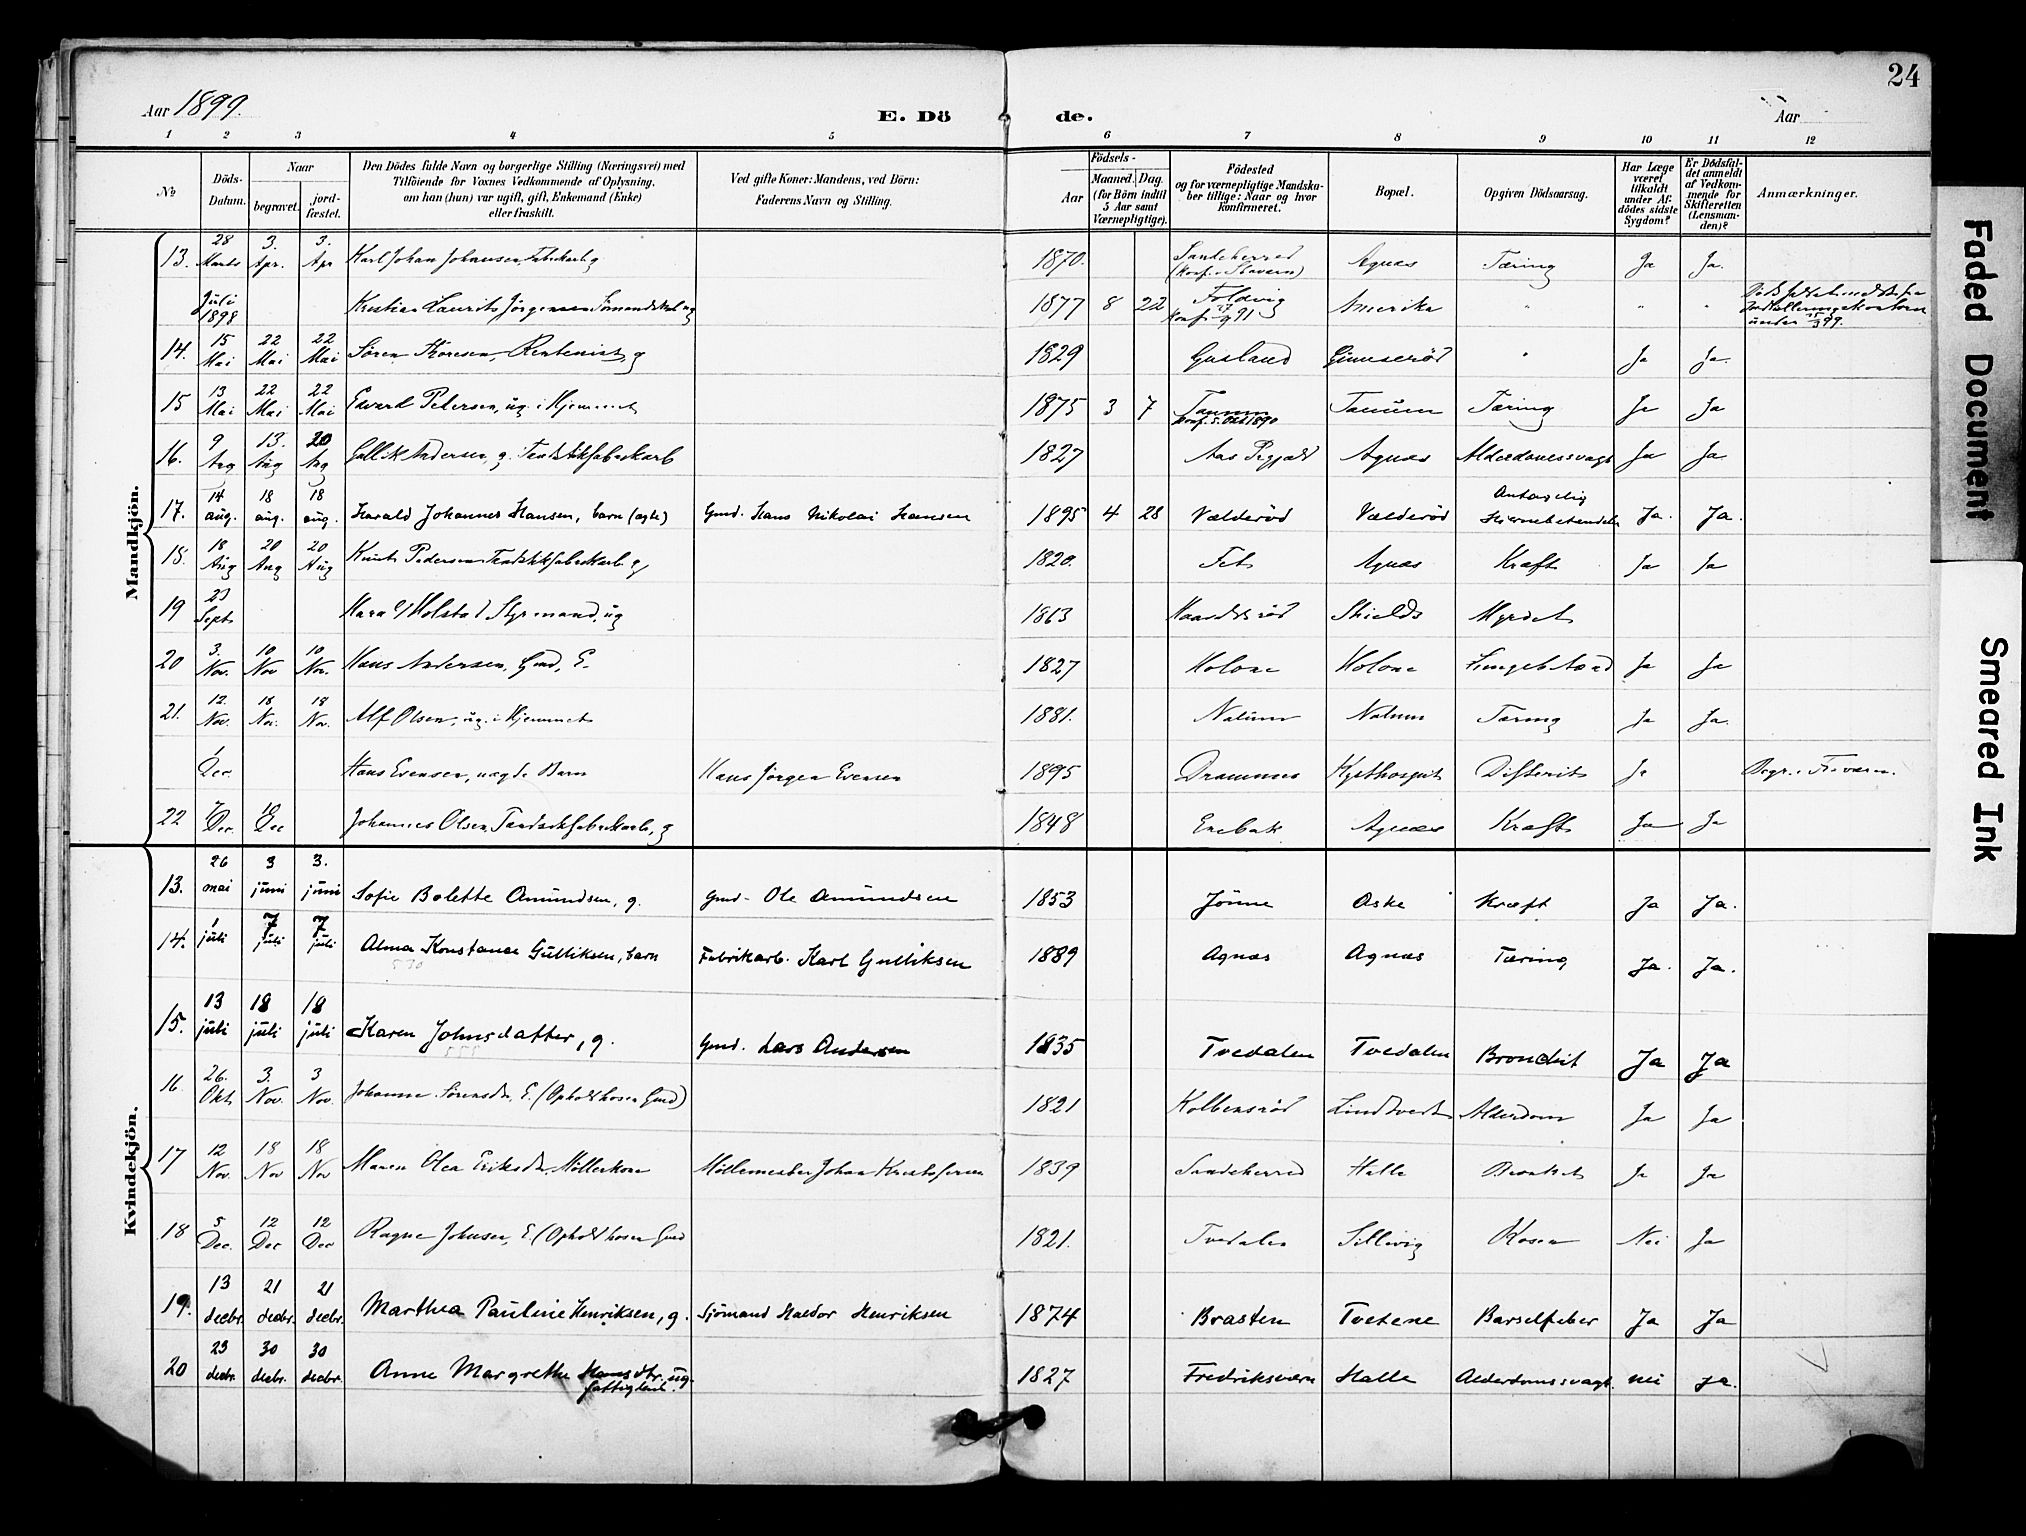 24
Aar 1899.
E. Döde.
Aar
1 2 3 4 5 6 7 8 9 10 11 12
No
Döds-Datum.
Naar
begravet.
jordfæstet.
Den Dödes fulde Navn og borgerlige Stilling (Næringsvei) med
Tilföiende for Voxnes Vedkommende af Oplysning,
om han (hun) var ugift, gift, Enkemand (Enke)
eller fraskilt.
Ved gifte Koner: Mandens, ved Börn:
Faderens Navn og Stilling.
Födsels-
Aar
Maaned. Dag.
(for Börn indtil
5 Aar samt
Værnepligtige).
Födested
og for værnepligtige Mandska-
ber tillige: Naar og hvor
konfirmeret.
Bopæl.
Opgiven Dödsaarsag.
Har Læge
været
tilkaldt
under Af-
dödes sidste
Sygdom?
Er Dödsfal-
det anmeldt
af Vedkom-
mende for
Skifteretten
(Lensman-
den)?
Anmærkninger.
Mandkjön.
13. 28 Marts 3. Apr. 3. Apr Karl Johan Johansen, Fabrikarb. g 1870. Sandeherred (Konf. i Stavern) Agnæs Tæring Ja Ja.
Juli 1898 Kristian Laurits Jörgensen Sömand ug 1877 8 22 Foldvig Konf. 91 Amerika " " "
14. 15 Mai 22 Mai 22 Mai Sören Thoresen, Rentenist, g 1829 Gusland Gunnerød " Ja Ja.
15 13 Mai 22 Mai 22 Mai Edvard Petersen, ug. i Hjemmet 1875 3 7 Tanum Konf. 5. Okt 1890 Tanum Tæring Ja Ja
16. 9 Aug 13. Aug 20 Aug Gullik Andersen, g. Tændstikfabrikarb 1827 Aas Prgjæld Agnæs Alderdomssvagh Ja Ja
17. 14 aug. 18 aug. 18 aug. Harald Johannes Hansen, barn (ægte) Gmd. Hans Nikolai Hansen 1895 4 28 Vælderöd Vælderöd Antagelig Hjernebetændelse Ja. Ja.
18. 18 Aug 20 Aug 20 Aug Knut Pedersen Tændstikfabrikarb g 1820. Fet Agnæs Kræft Ja Ja
19 23 Sept Holstad Styrmand, ug 1863 Shields Myrdet
20 3. Nov. 10 Nov 10 Nov. Hans Andersen, Gmd, E. 1827 Holone Holone Lungebetænd Ja Ja
21. 12. Nov. 18 Nov. 18 Nov. Alf Olsen, ug. i Hjemmet 1881. Nalum Nalum Tæring Ja Ja.
1 Dec. Hans Evensen, uægte Barn Hans Jörgen Evensen 1895 Drammen Difterit Ja Begr. i
22 7 Dec. 10 Dec Johannes Olsen, Tændstikfabrikarb, g 1848 Enebak Agnæs Kræft Ja Ja
Kvindekjön.
13. 26 mai 3 juni 3. juni Sofie Bolette Amundsen, g. Gmd. Ole Amundsen 1853 Jönne Aske Kræft Ja Ja.
14. 1 juli 7 juli 7 juli Alma Konstance Gulliksen, barn Fabrikarb. Karl Gulliksen 1889 Agnæs Agnæs Tæring Ja. Ja.
15. 13 juli 18 juli 18 juli Karen Johnsdatter, g. Gmd. Lars Andersen 1835 Tvedalen Tvedalen Bronchit Ja Ja
16. 26. Okt 3. Nov. 3 Nov. Johanne Sörensdr, E. (Ophold hos en Gmd) 1821 Kolbensröd Lindtvedt Alderdom Ja Ja
17 12 Nov. 18 Nov 18 Nov Maren Olea Eriksdr, Möllerkone Möllemester Johan Kristofersen 1839 Sandeherred Halle Bronkit Ja Ja
18 5 Dec. 12 Dec 12 Dec Ragne Johnsen, E. (Ophold hos en Gmd 1821. Tvedalen Sillevig Rosen Nei Ja
19. 13 decbr. 21 decbr. 21 decbr. Marthea Pauline Henriksen, g. Sjömand Haldor Henriksen 1874 Brasten Tvetene Barselfeber Ja Ja
20 23 decbr. 30 decbr. 30 decbr. Anne Margrethe Hansdtr. ug. fattiglem. 1827 Fredriksværn Halle Alderdomssvagh. nei ja.
Faded Document
Smeared Ink